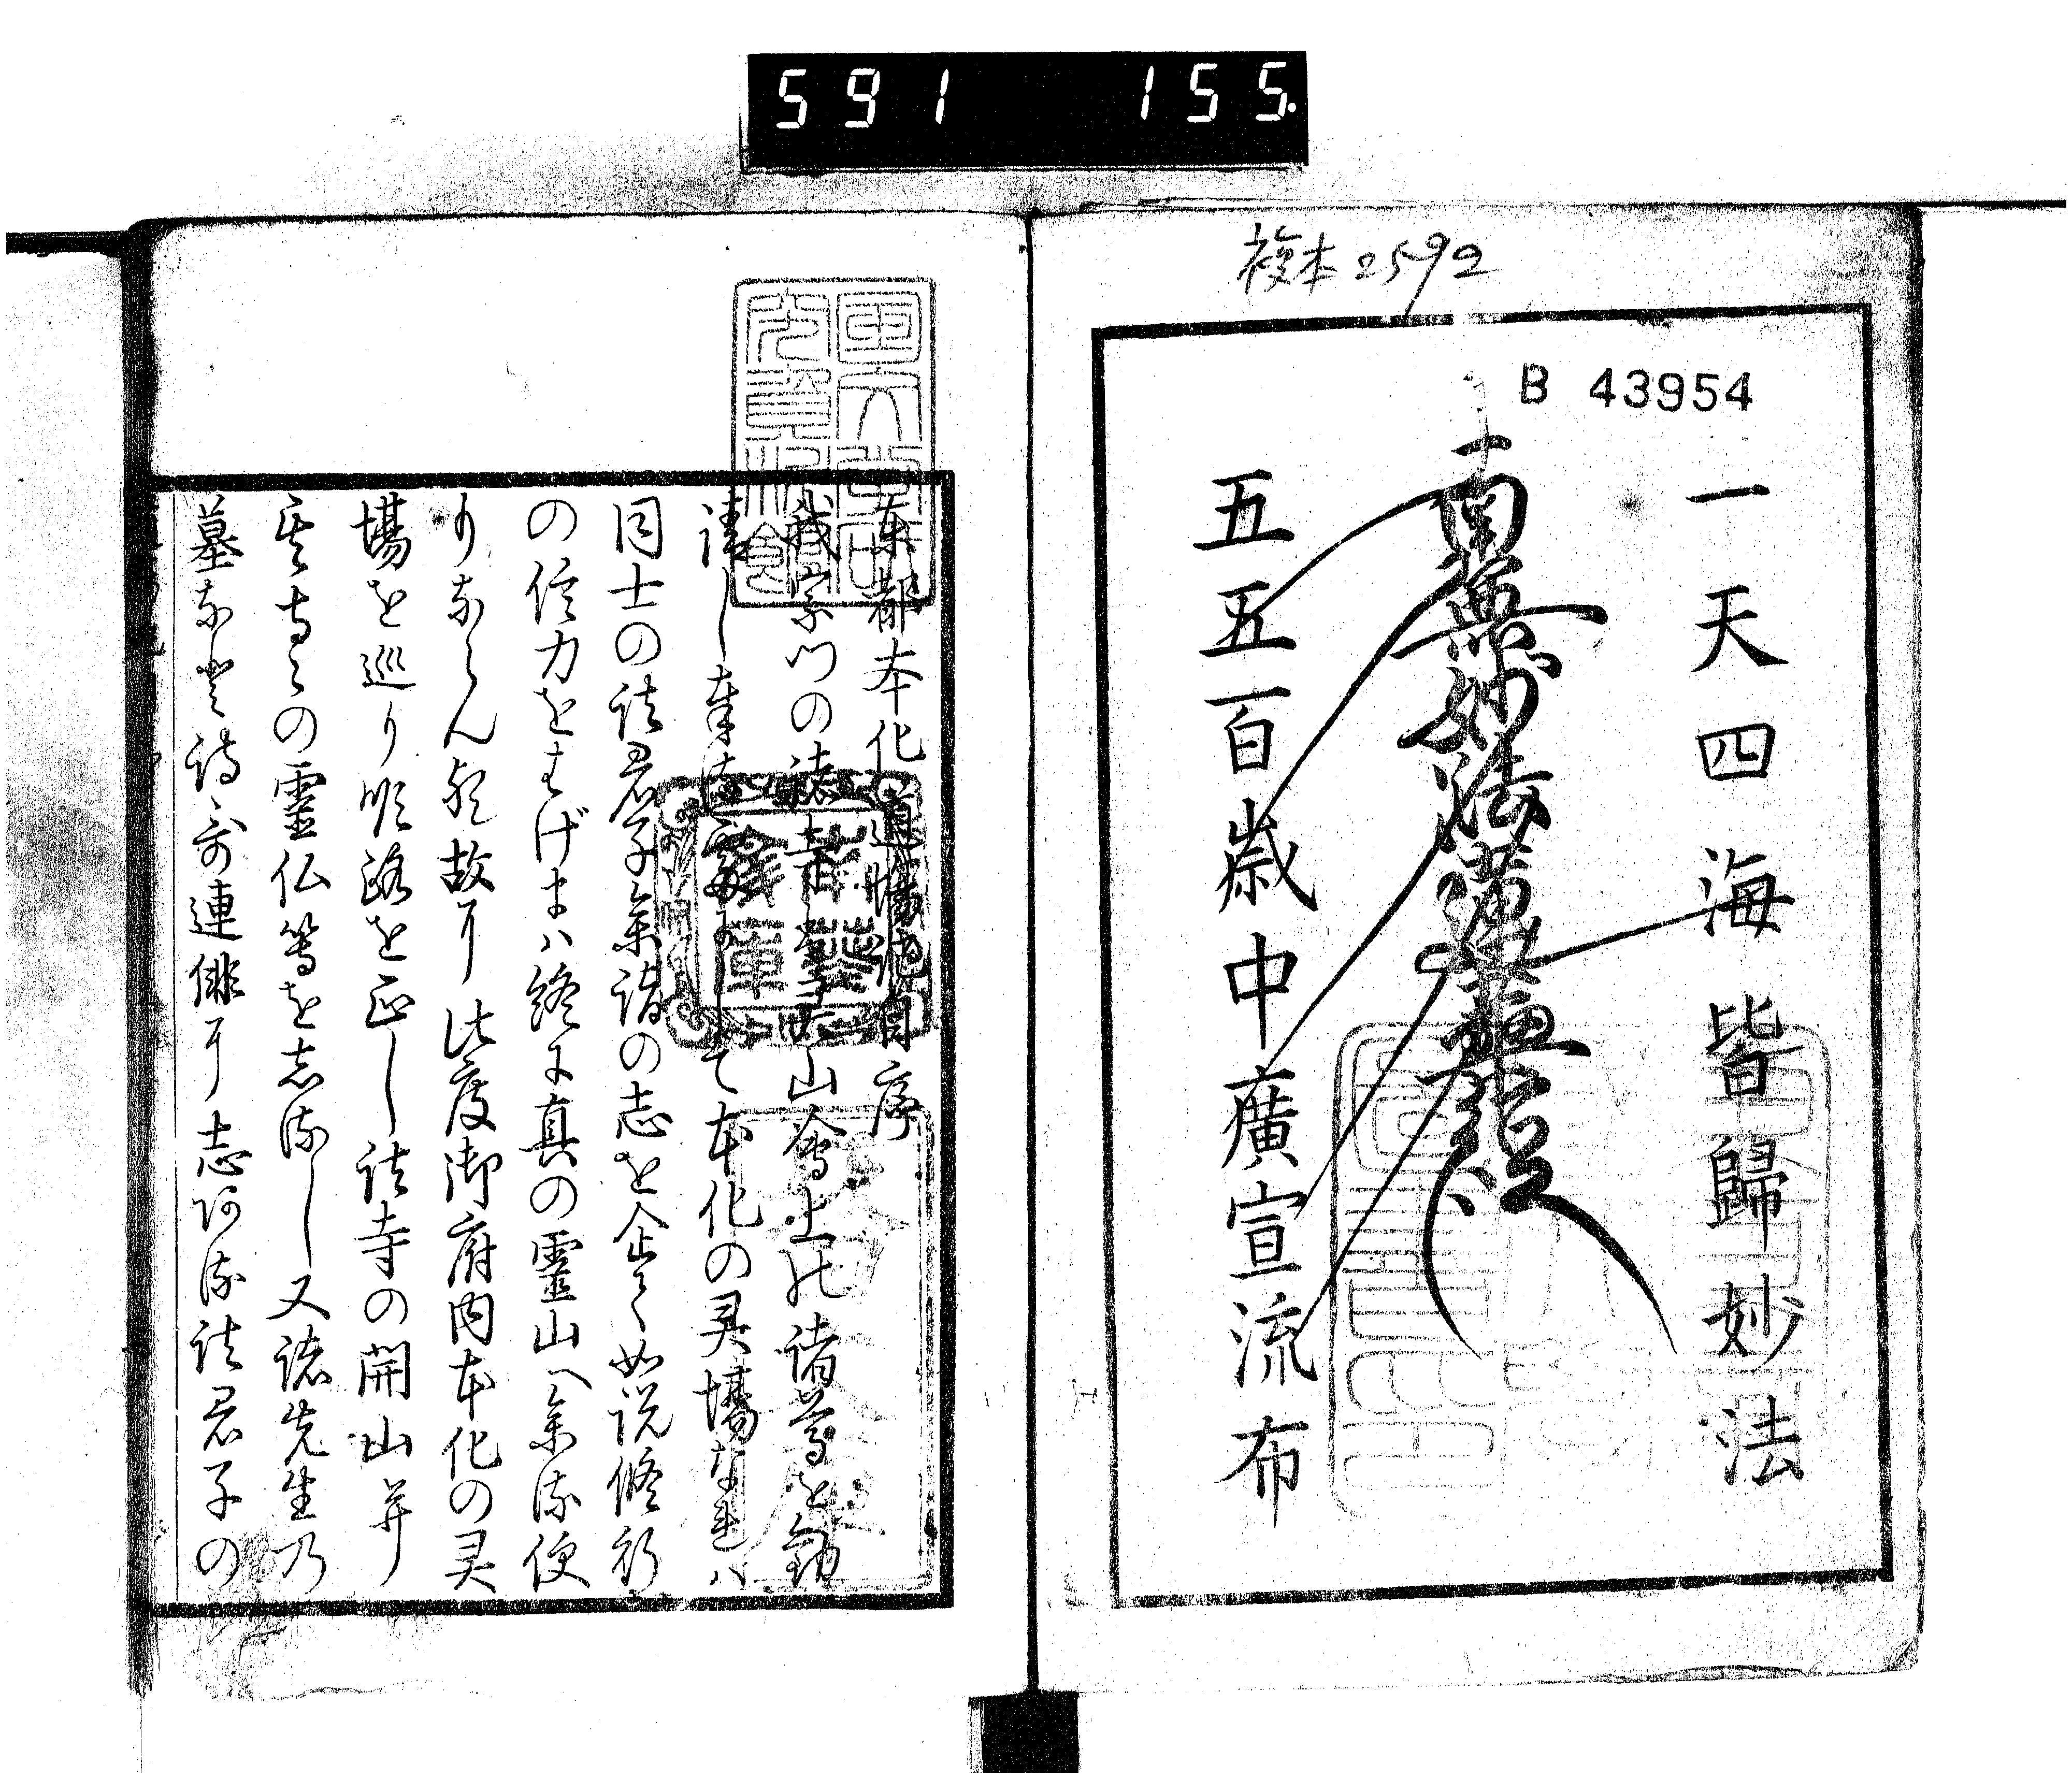 591 155.
複本2592
B 43954
一天四海皆歸妙法
南無妙法蓮華經
五五百歳中廣宣流布
東都本化道場 序
我宗門の諸 山 諸尊を勧
請し奉 て本化の灵場なれハ
同士の法君子参詣の志を企て如説修行
の信力をはげまハ終に真の靈山へ参る便
りならん故に此度御府内本化の灵
場を巡り順路を正し法寺の開山并に
其寺々の靈仏等を志るし又諸先生乃
墓など詩哥連俳に志ある法君子の